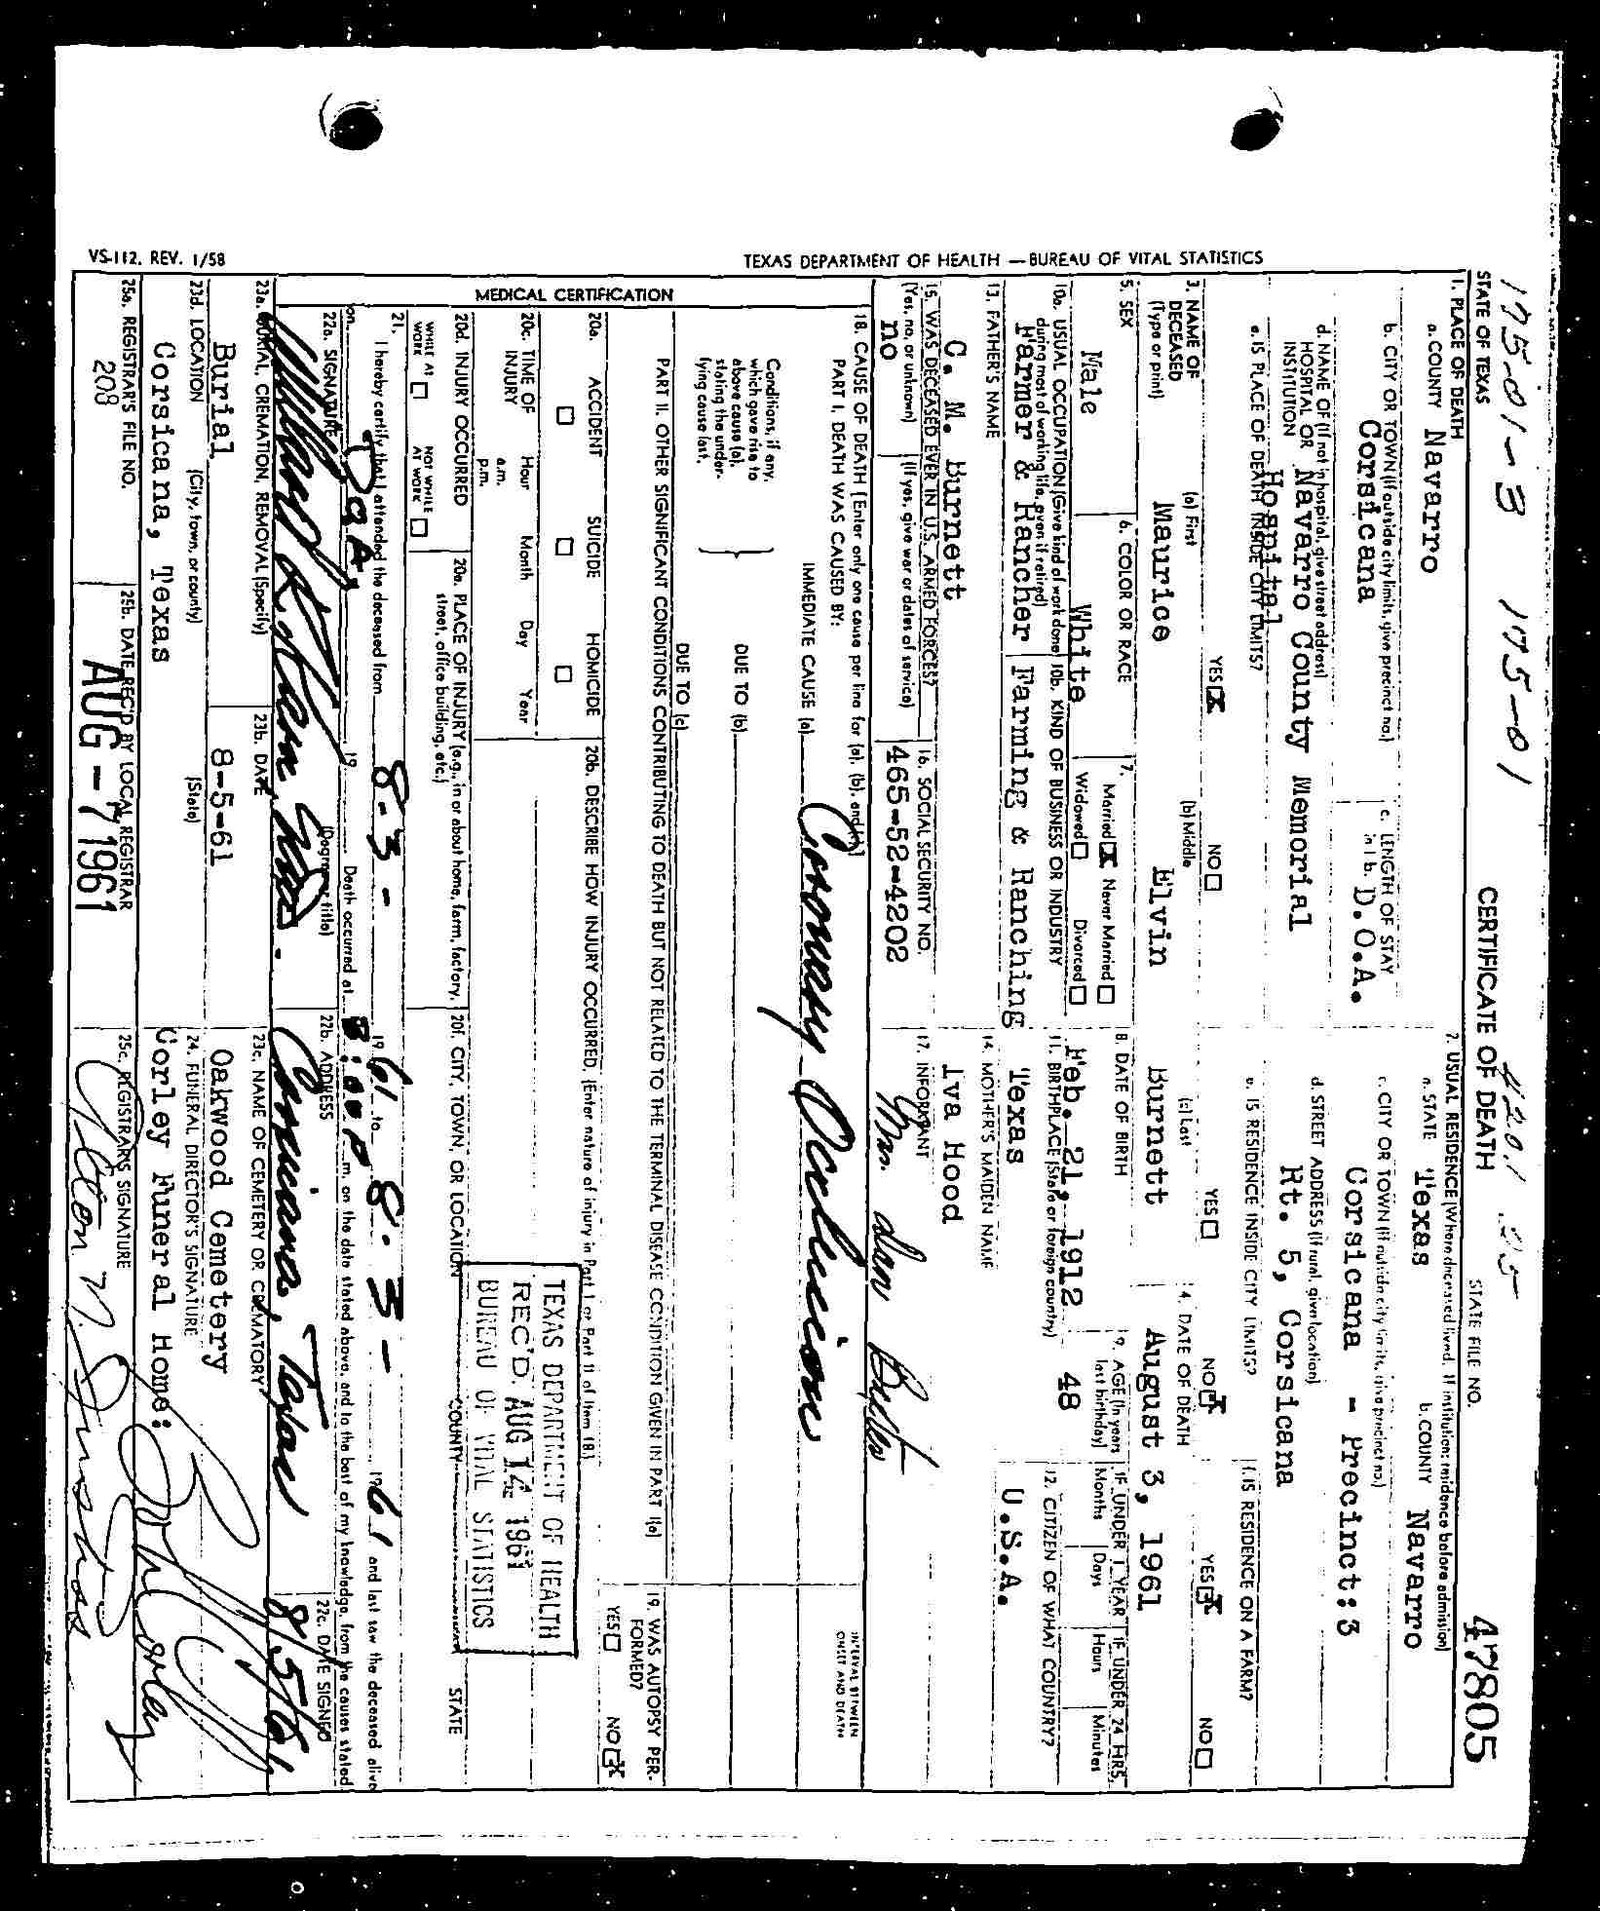 175-01-3 175-01 420.1 .05
STATE OF TEXAS CERTIFICATE OF DEATH STATE FILE NO. 47805
1. PLACE OF DEATH
a. COUNTY Navarro
2. USUAL RESIDENCE (Where deceased lived. If institution: residence before admission)
a. STATE Texas b. COUNTY Navarro
b. CITY OR TOWN (If outside city limits, give precinct no.)
Corsicana
c. LENGTH OF STAY
in 1b. D.O.A.
c. CITY OR TOWN (If outside city limits, give precinct no.)
Corsicana - Precinct:3
d. NAME OF (If not in hospital, give street address)
HOSPITAL OR
INSTITUTION Navarro County Memorial
Hospital
d. STREET ADDRESS (If rural, give location)
Rt. 5, Corsicana
e. IS PLACE OF DEATH INSIDE CITY LIMITS?
YES ☒ NO ☐
e. IS RESIDENCE INSIDE CITY LIMITS?
YES ☐ NO ☒
f. IS RESIDENCE ON A FARM?
YES ☒ NO ☐
3. NAME OF
DECEASED
(Type or print)
(a) First (b) Middle (c) Last
Maurice Elvin Burnett
4. DATE OF DEATH
August 3, 1961
5. SEX
Male
6. COLOR OR RACE
White
7.
Married ☒ Never Married ☐
Widowed ☐ Divorced ☐
8. DATE OF BIRTH
Feb. 21, 1912
9. AGE (In years
last birthday)
48
IF UNDER 1 YEAR
Months Days
IF UNDER 24 HRS.
Hours Minutes
10a. USUAL OCCUPATION (Give kind of work done
during most of working life, even if retired)
Farmer & Rancher
10b. KIND OF BUSINESS OR INDUSTRY
Farming & Ranching
11. BIRTHPLACE (State or foreign country)
Texas
12. CITIZEN OF WHAT COUNTRY?
U.S.A.
13. FATHER'S NAME
C. M. Burnett
14. MOTHER'S MAIDEN NAME
Iva Hood
15. WAS DECEASED EVER IN U.S. ARMED FORCES?
(Yes, no, or unknown) (If yes, give war or dates of service)
no
16. SOCIAL SECURITY NO.
465-52-4202
17. INFORMANT
Mrs.
18. CAUSE OF DEATH [Enter only one cause per line for (a), (b), and (c).]
PART I. DEATH WAS CAUSED BY:
IMMEDIATE CAUSE (a) Coronary Occlusion
INTERVAL BETWEEN
ONSET AND DEATH
Conditions, if any,
which gave rise to
above cause (a),
stating the under-
lying cause last.
DUE TO (b)
DUE TO (c)
PART II. OTHER SIGNIFICANT CONDITIONS CONTRIBUTING TO DEATH BUT NOT RELATED TO THE TERMINAL DISEASE CONDITION GIVEN IN PART I(a)
19. WAS AUTOPSY PER-
FORMED?
YES ☐ NO ☒
MEDICAL CERTIFICATION
20a. ACCIDENT SUICIDE HOMICIDE
☐ ☐ ☐
20b. DESCRIBE HOW INJURY OCCURRED. (Enter nature of injury in Part I or Part II of item 18.)
20c. TIME OF
INJURY
Hour Month Day Year
a.m.
p.m.
20d. INJURY OCCURRED
WHILE AT
WORK ☐
NOT WHILE
AT WORK ☐
20e. PLACE OF INJURY (e.g., in or about home, farm, factory,
street, office building, etc.)
20f. CITY, TOWN, OR LOCATION COUNTY STATE
TEXAS DEPARTMENT OF HEALTH
REC'D. AUG 14 1961
BUREAU OF VITAL STATISTICS
21.
I hereby certify that I attended the deceased from 8-3- 19 61 to 8-3- 19 61 and last saw the deceased alive
on DOA, 19 Death occurred at 8:00P m. on the date stated above, and to the best of my knowledge, from the causes stated
22a. SIGNATURE (Degree or title)
22b. ADDRESS
Corsicana, Texas
22c. DATE SIGNED
8/5/61
23a. BURIAL, CREMATION, REMOVAL (Specify)
Burial
23b. DATE
8-5-61
23c. NAME OF CEMETERY OR CREMATORY
Oakwood Cemetery
23d. LOCATION (City, town, or county) (State)
Corsicana, Texas
24. FUNERAL DIRECTOR'S SIGNATURE
Corley Funeral Home:
25a. REGISTRAR'S FILE NO.
208
25b. DATE REC'D BY LOCAL REGISTRAR
AUG - 7 1961
25c. REGISTRAR'S SIGNATURE
VS-112, REV. 1/58
TEXAS DEPARTMENT OF HEALTH — BUREAU OF VITAL STATISTICS